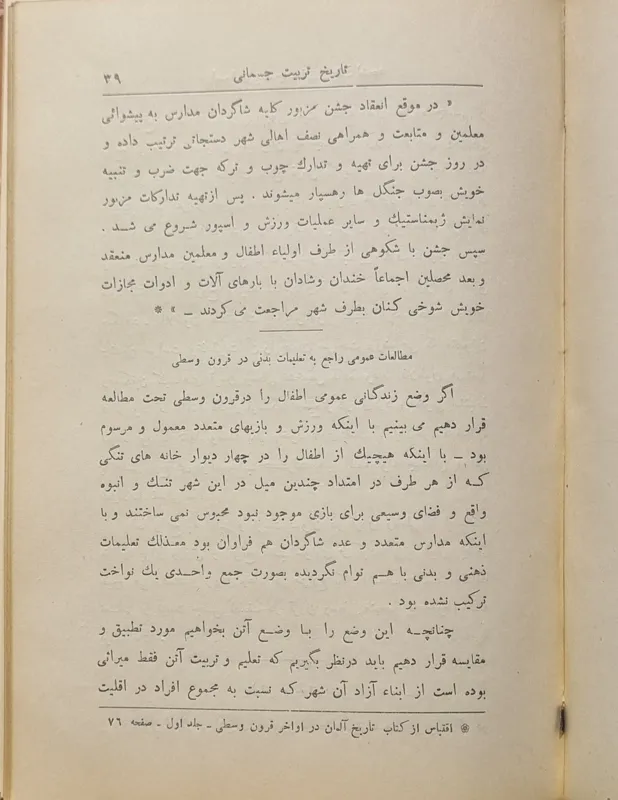 تاریخ تربیت جسمانی
۳۹
« در موقع انعقاد جشن مزبور کلیه شاگردان مدارس به پیشوائی
معلمین و متابعت و همراهی نصف اهالی شهر دستجاتی ترتیب داده و
در روز جشن برای تهیه و تدارك چوب و ترکه جهت ضرب و تنبیه
خویش بصوب جنگل ها رهسپار میشوند . پس ازتهیه تدارکات مزبور
نمایش ژیمناستیك و سایر عملیات ورزش و اسپور شروع می شد .
سپس جشن با شکوهی از طرف اولیاء اطفال و معلمین مدارس منعقد
و بعد محصلین اجماعاً خندان وشادان با بارهای آلات و ادوات مجازات
خویش شوخی کنان بطرف شهر مراجعت می کردند ــ » *
مطالعات عمومی راجع به تعلیمات بدنی در قرون وسطی
اگر وضع زندگانی عمومی اطفال را درقرون وسطی تحت مطالعه
قرار دهیم می بینیم با اینکه ورزش و بازیهای متعدد معمول و مرسوم
بود ــ با اینکه هیچیك از اطفال را در چهار دیوار خانه های تنگی
که از هر طرف در امتداد چندین میل در این شهر تنك و انبوه
واقع و فضای وسیعی برای بازی موجود نبود محبوس نمی ساختند و با
اینکه مدارس متعدد و عده شاگردان هم فراوان بود معذلك تعلیمات
ذهنی و بدنی با هم توام نگردیده بصورت جمع واحدی یك نواخت
ترکیب نشده بود .
چنانچه این وضع را با وضع آتن بخواهیم مورد تطبیق و
مقایسه قرار دهیم باید درنظر بگیریم که تعلیم و تربیت آتن فقط میراثی
بوده است از ابناء آزاد آن شهر که نسبت به مجموع افراد در اقلیت
* اقتباس از کتاب تاریخ آلمان در اواخر قرون وسطی ـ جلد اول ـ صفحه ۷۶